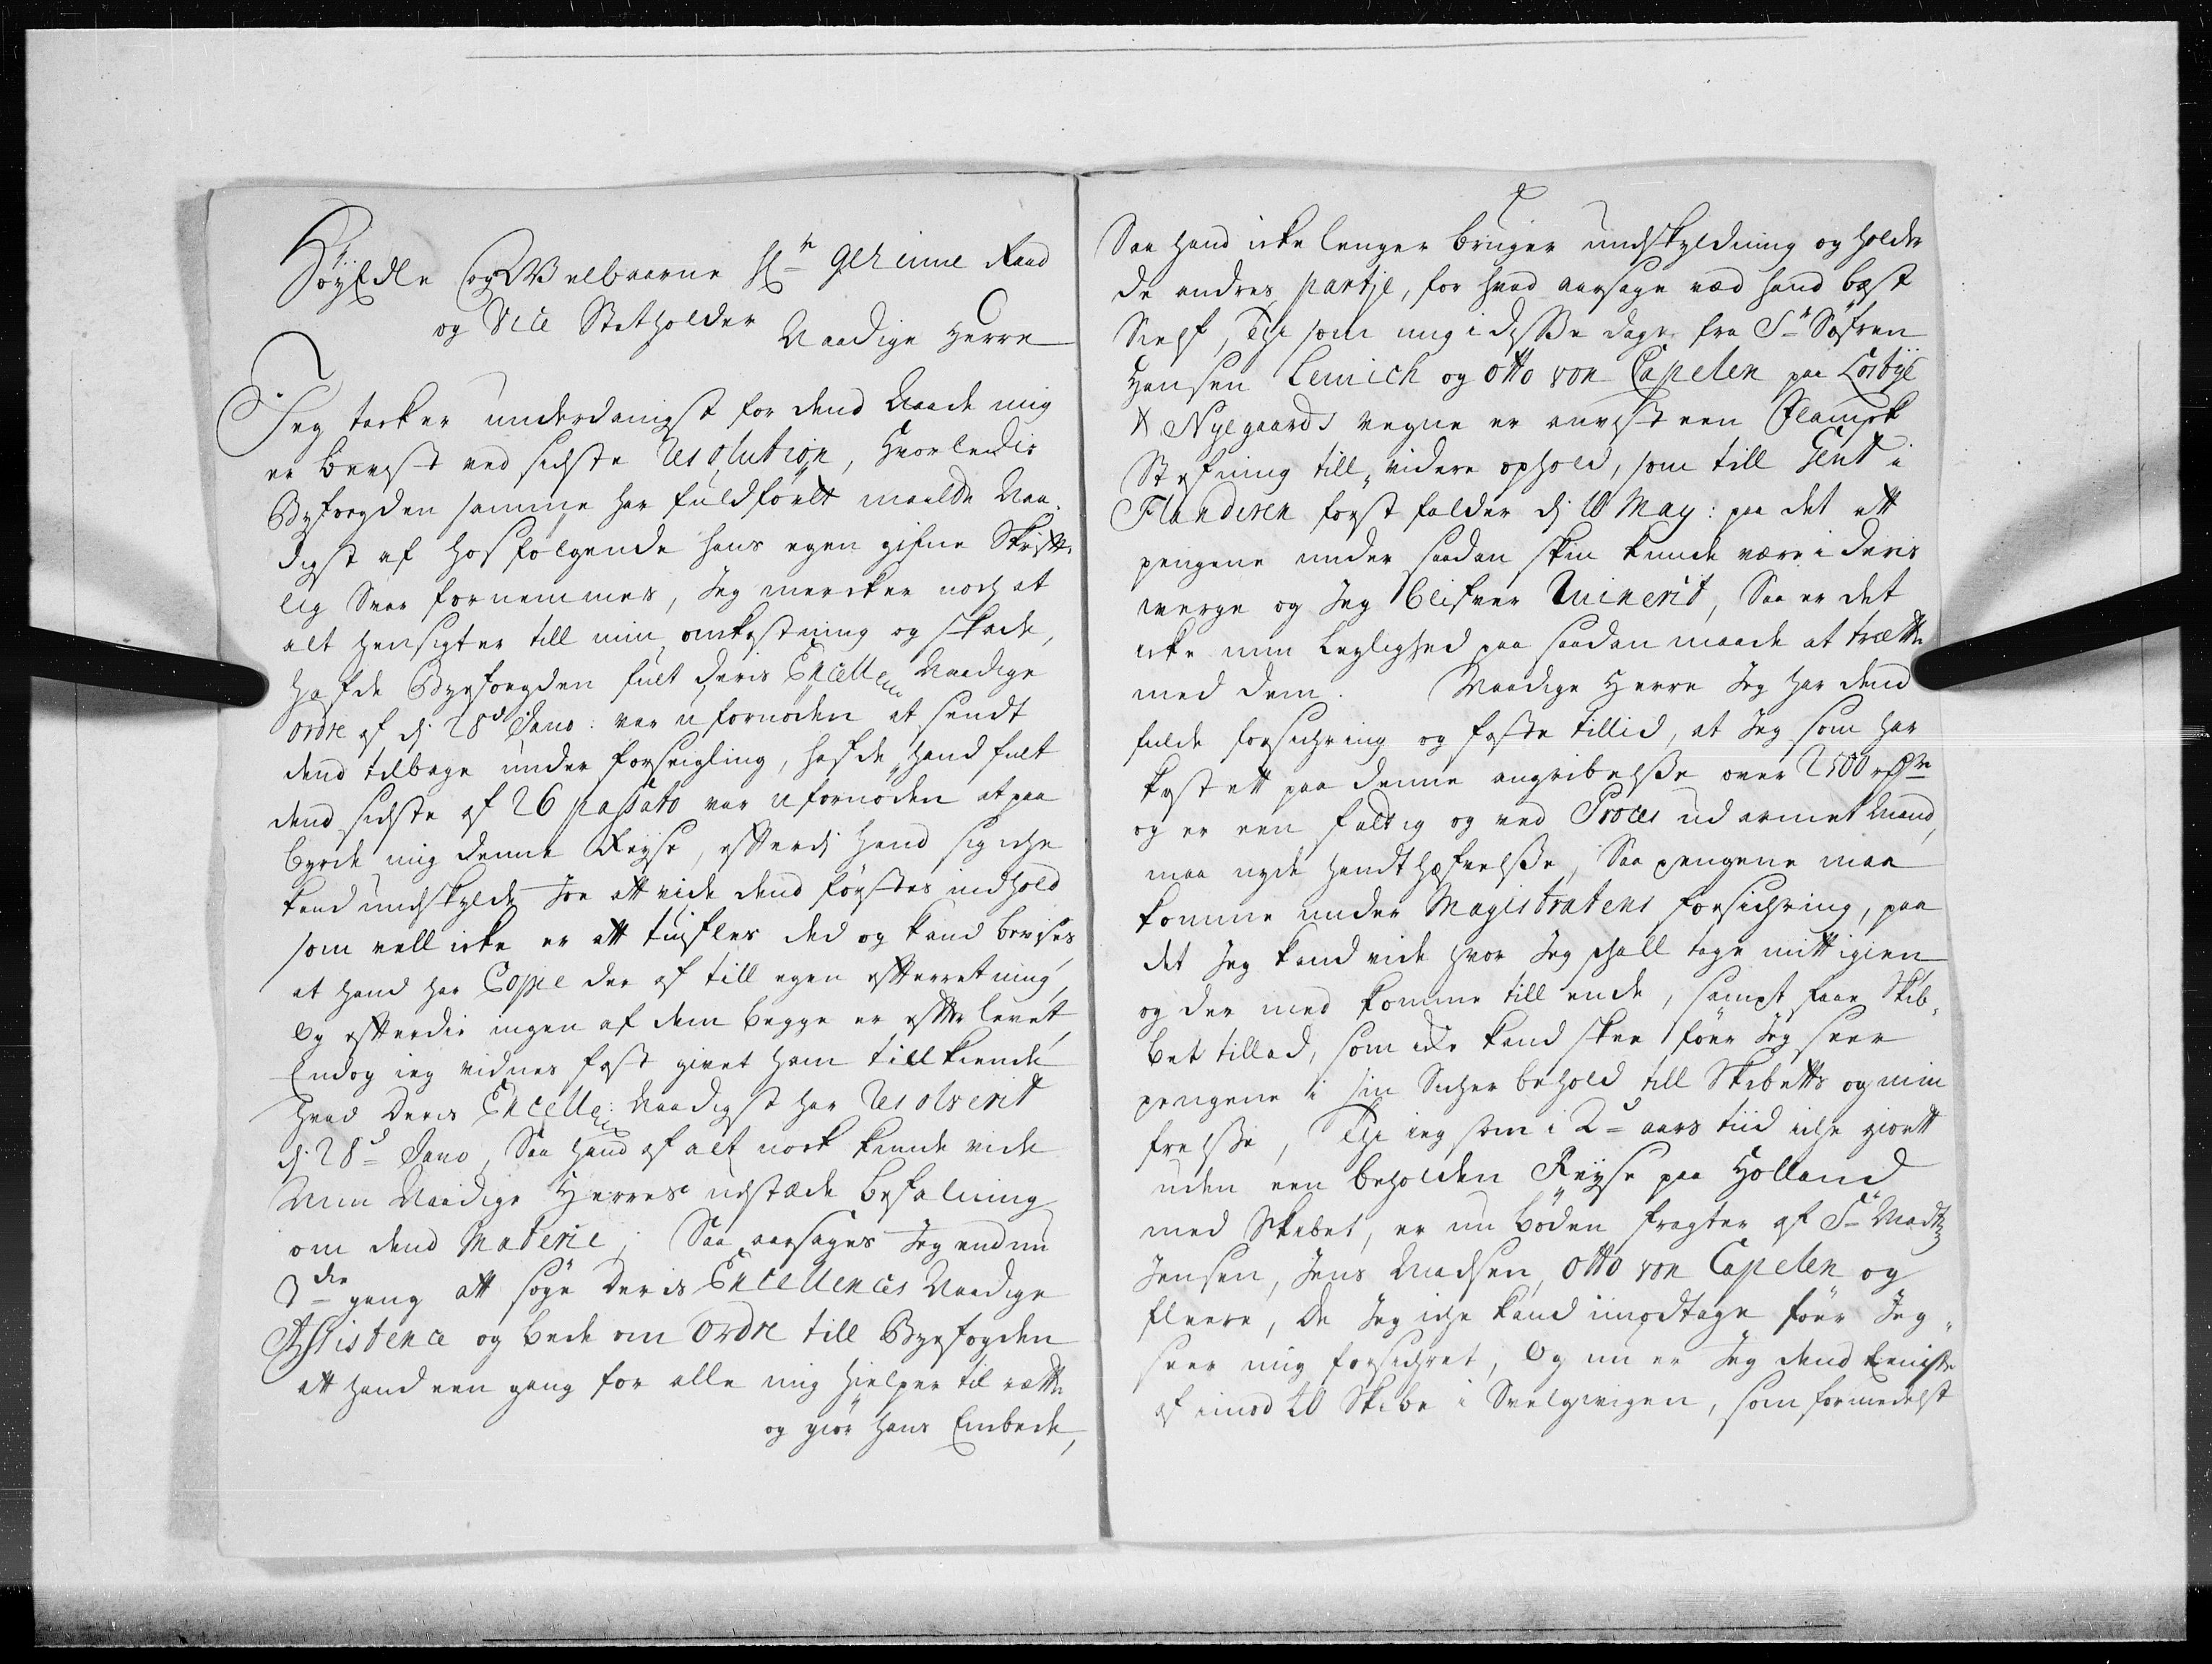 HøyEdle og Welbaarne Hr Geheime Raad
og Vice Statholder
Naadige Herre
Jeg tacker underdanigst for dend Naade mig
er beevist ved sidste Resolution, Hvorledis
Byfoegden samme har fuldført maatte Naa-
digst af hosfølgende hans egen gifne Skrifft-
lig Svar fornemmes, Jeg mercker noch at
alt hensigter till min omkostning og skade,
hafde Byefoegden fült deris Excellen Naadige
ordre af dj 28d Jano: var ufornøden at sendt
dend tilbage under forseigling, hafde hand fult
dend sidste af 26 passato var ufornøden at paa
byrde mig denne Reyse, efterdj hand sig iche
kand undskylde Jo att vide dend førstes indhold
som vell icke er att tuifles ded og kand bevises,
at hand har Copie der af till egen efterretning,
Og efterdie ingen af dem begge er efterlevet,
Endog ieg vidnes fast givet ham tillkiende
hvad deris Excelle: Naadigst har Resolverit
dj 28d Jano, Saa hand af alt nock kunde vide
Min Naadige Herres udstæde befalning
om dend Materie; Saa aarsages Jeg endnu
3die gang att søge deris Excellences Naadige
Assistence og bede om Ordre till Byefogden
att hand een gang for alle mig hielper til rætte
og giør hans Embede,
Saa hand icke lenger bruger undskyldning og holder
de andres partje, for hvad aarsage ved hand best
Self, Thi som mig i disse dage fra Sr Søfren
Hansen Lemich og Otto von Capelen paa Losbye
& Nyegaards vegne er anvist een Flamsk
Stefning till videre ophold, som till Gent i
Flanderen først falder dj 10 May: paa det att
pengene under saadan skin kunde være i deris
verge og Jeg blifver Ruinerit, Saa er det
icke min Leylighed paa saadan maade at trætte
med dem. Naadige Herre Jeg har dend
fulde forsichring og faste tillid, at Jeg som har
kostett paa denne angribelsse over 2500 rdr
og er een fattig og ved Proces udarmet Mand,
maa nyde handthæfvelsse, Saa pengene maa
komme under Magistratens forsichring, paa
det Jeg kand vide hvor Jeg schall tage mitt igien
og der med komme till ende, sampt faae Skib-
bet tillad, som iche kand skee førr Jeg seer
pengene i sin Sicher behold till Skibetts og min
frelsse, Thi ieg som i 2d aars tiid iche giortt
uden een beholden Reyse paa Holland
med Skibet, er nu bøden fragter af Sr Madtz
Jensen, Jens Madsen, Otto von Capelen og
fleere, De Jeg iche kand imodtage førr Jeg
seer mig forsichret, Og nu er Jeg dend Eeniste
af imod 20 Skibe i Svelgvigen, som formedelst